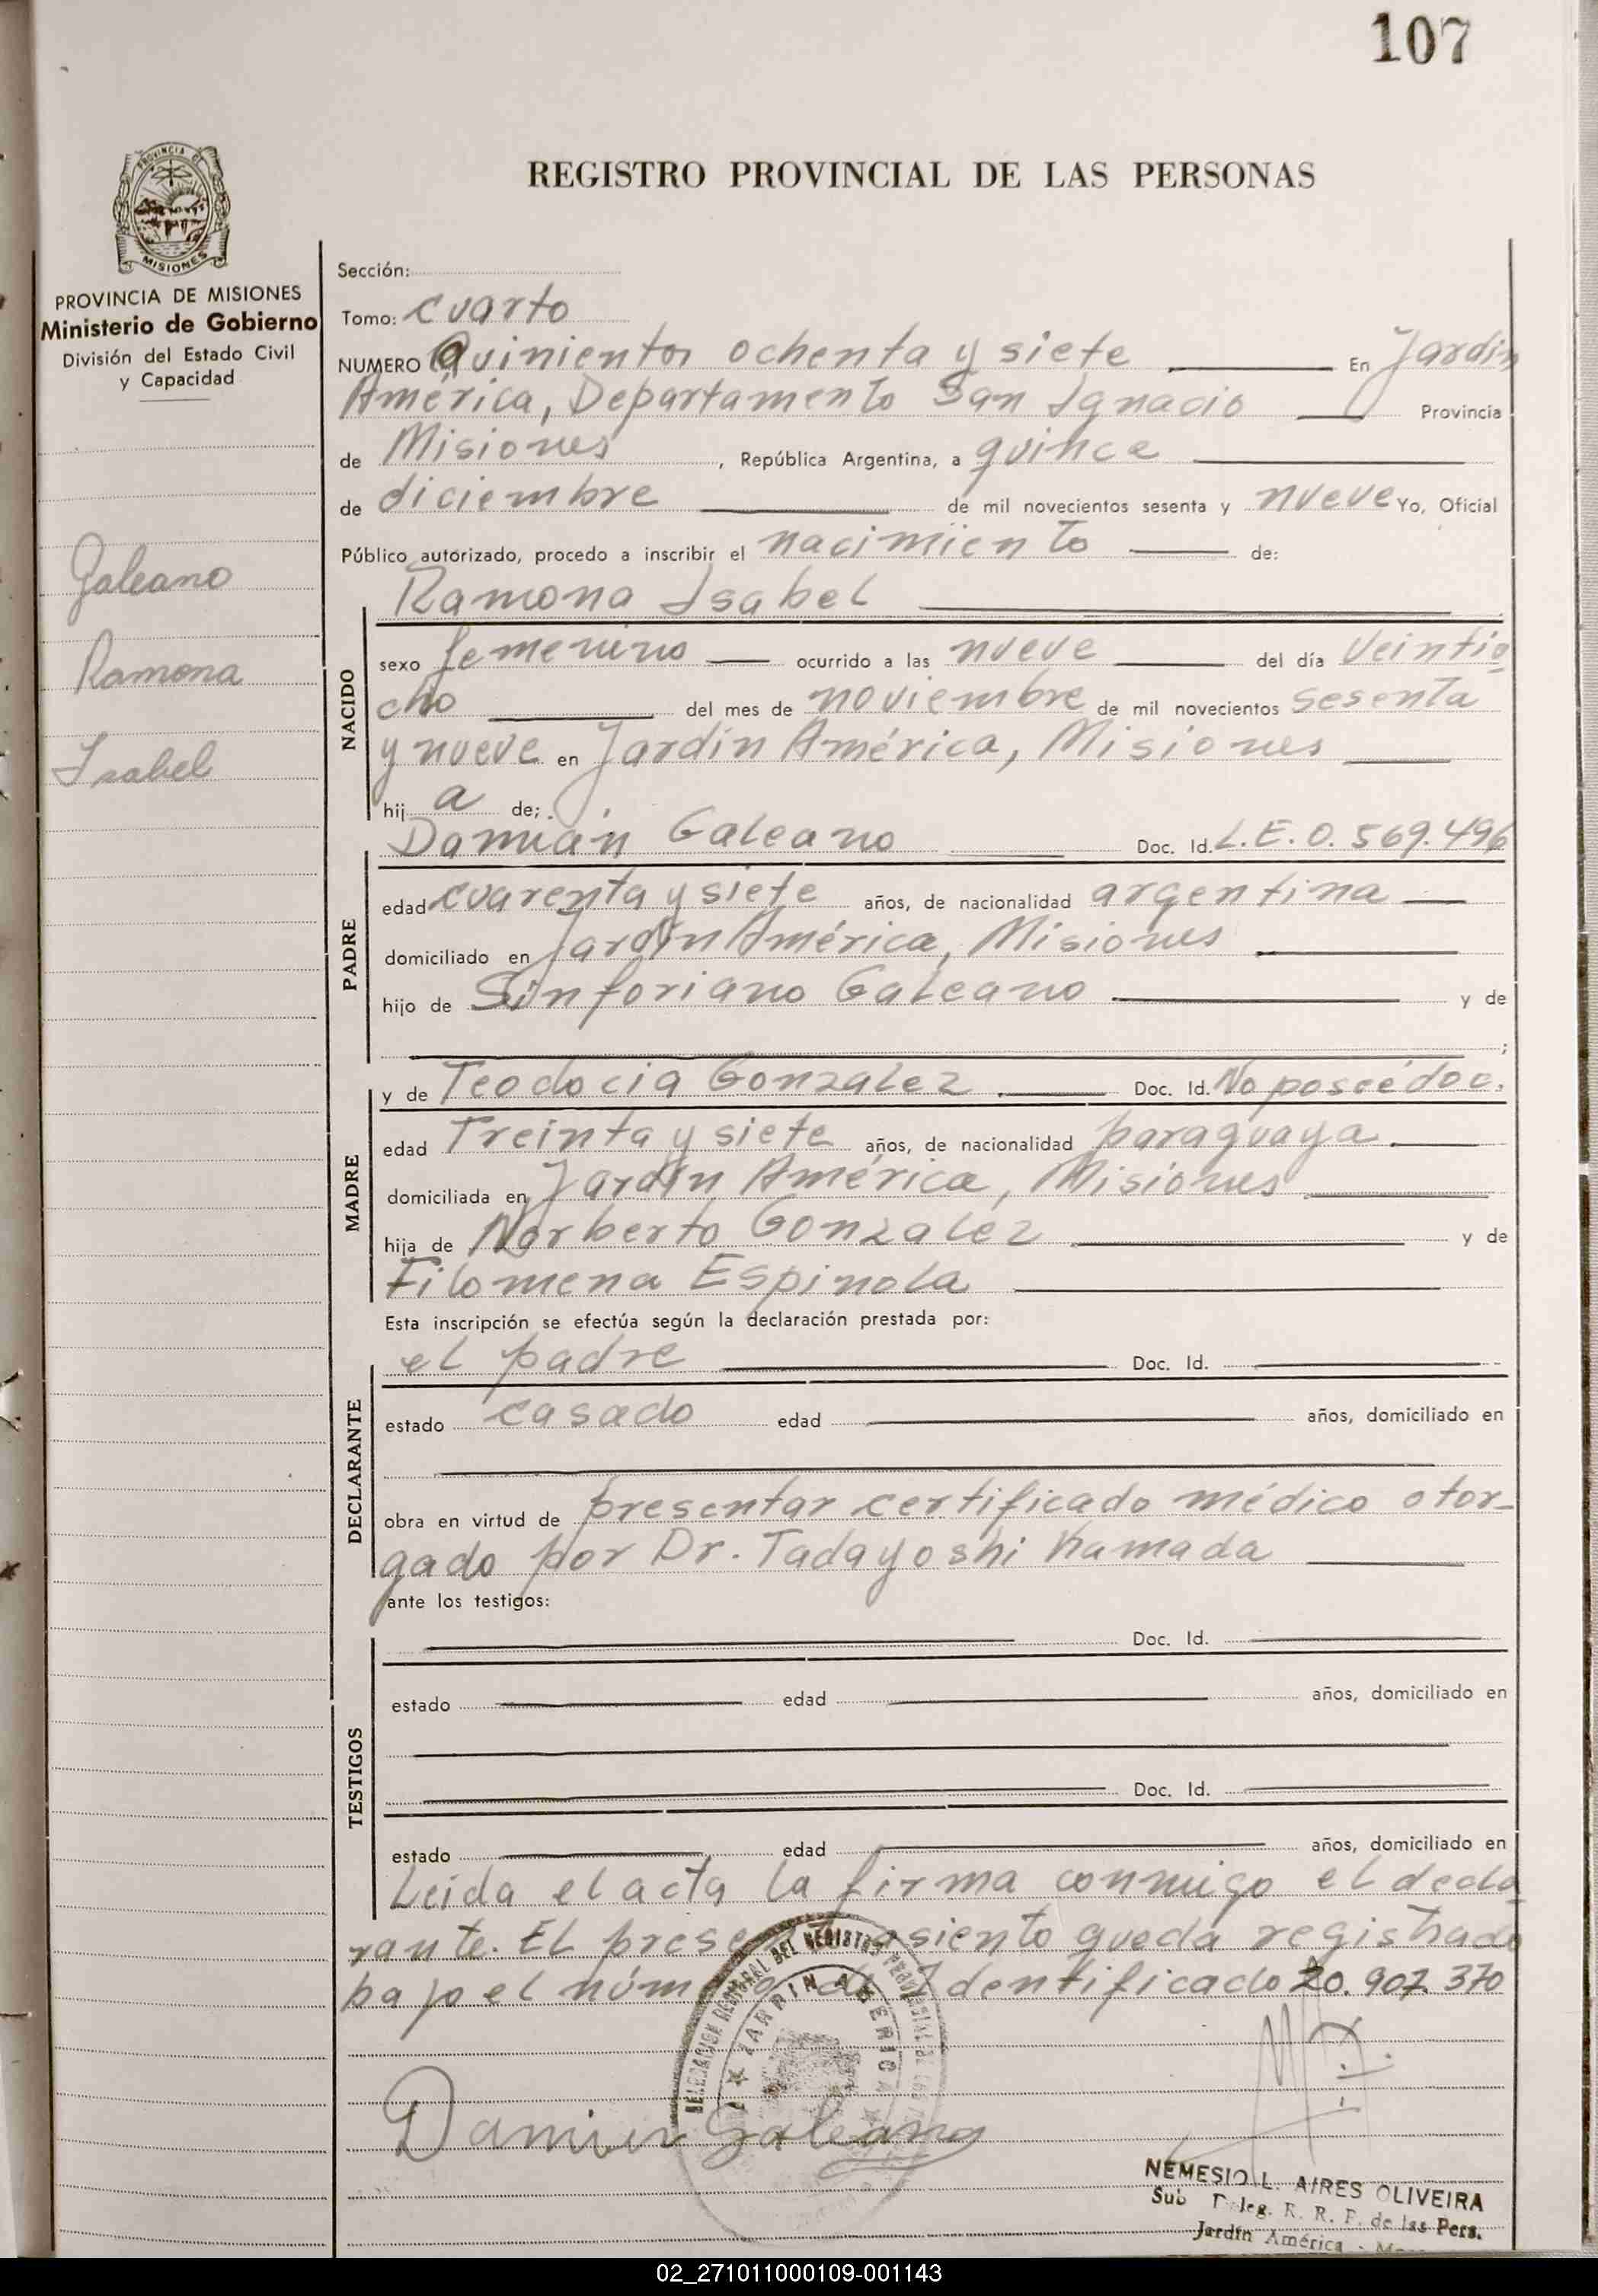 107
REGISTRO PROVINCIAL DE LAS PERSONAS
PROVINCIA DE
MISIONES
PROVINCIA DE MISIONES
Ministerio de Gobierno
División del Estado Civil
y Capacidad
Galeano
Ramona
Isabel
Sección:
Tomo: cuarto
NUMERO Quinientos ochenta y siete En Jardín
América, Departamento San Ignacio Provincia
de Misiones, República Argentina, a quince
de diciembre de mil novecientos sesenta y nueve Yo, Oficial
Público autorizado, procedo a inscribir el nacimiento de:
Ramona Isabel
NACIDO
sexo femenino ocurrido a las nueve del día veintio
cho del mes de noviembre de mil novecientos sesenta
y nueve en Jardín América, Misiones
hij a de;
Damián Galeano Doc. Id. L.E. 0.569.496
PADRE
edad cuarenta y siete años, de nacionalidad argentina
domiciliado en Jardín América, Misiones
hijo de Sinforiano Galeano y de
;
y de Teodocia Gonzalez Doc. Id. No posée doc.
MADRE
edad Treinta y siete años, de nacionalidad paraguaya
domiciliada en Jardín América, Misiones
hija de Norberto Gonzalez y de
Filomena Espinola
Esta inscripción se efectúa según la declaración prestada por:
el padre Doc. Id.
DECLARANTE
estado casado edad años, domiciliado en
obra en virtud de presentar certificado médico otor-
gado por Dr. Tadayoshi Kamada
ante los testigos:
Doc. Id.
TESTIGOS
estado edad años, domiciliado en
Doc. Id.
estado edad años, domiciliado en
Leída el acta la firma conmigo el decla
rante. El presente asiento queda registrado
bajo el número de Identificado 20.907.370
DELEGACION REGIONAL DEL REGISTRO PROVINCIAL DE LAS
JARDIN AMERICA
Damian Galeano
NEMESIO L. AIRES OLIVEIRA
Sub Deleg. R. R. P. de las Pers.
Jardín América -
02_271011000109-001143